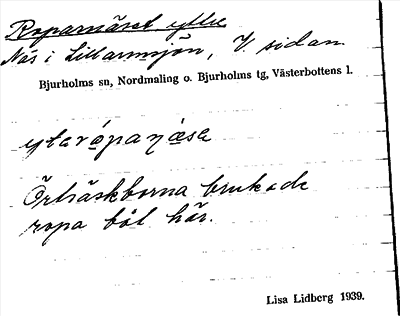 Roparnäset yttre
Näs i Lillarmsjön, V. sidan
Bjurholms sn, Nordmaling o. Bjurholms tg, Västerbottens l.
Örträskborna brukade
ropa båt här.
Lisa Lidberg 1939.